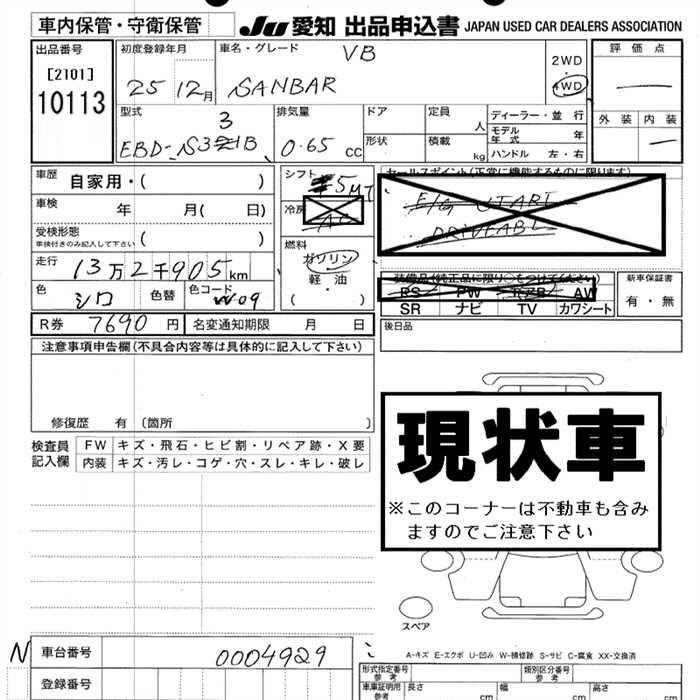 車内保管・守衛保管
JU 愛知 出品申込書 JAPAN USED CAR DEALERS ASSOCIATION
出品番号
[2101]
10113
初度登録年月
25 12月
車名・グレード VB
SANBAR
2WD
4WD
評価点
外装 内装
型式
3
EBD-
排気量
0.65 cc
ドア
形状
定員
人
積載
kg
ディーラー・並行
モデル年式 年
ハンドル 左・右
車歴 自家用・( )
車検 年 月( 日)
受検形態
車検付きのみ記入して下さい ( )
走行 13万2千905km
色 シロ 色替 色コード W09
R券 7690円 名変通知期限 月 日
シフト
5MT
冷房
AC
燃料
ガソリン
軽・油
( )
セールスポイント(正常に機能するものに限ります)
ENG START
DRIVEABLE
装備品(純正品に限り○をつけて下さい)
PS PW RエアB AW
SR ナビ TV カワシート
新車保証書
有・無
後日品
注意事項申告欄(不具合内容等は具体的に記入して下さい)
修復歴 有 〔箇所 〕
検査員記入欄
FW キズ・飛石・ヒビ割・リペア跡・X要
内装 キズ・汚レ・コゲ・穴・スレ・キレ・破レ
現状車
※このコーナーは不動車も含み
ますのでご注意下さい
スペア
A-キズ E-エクボ U-凹み W-補修跡 S-サビ C-腐食 XX-交換済
N
車台番号 0004929
登録番号
形式指定番号
参考
類別区分番号
参考
車庫証明用
参考
長さ cm 幅 cm 高さ cm